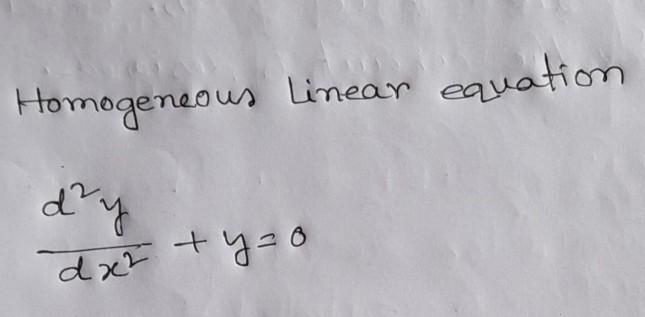 Homogeneous Linear equation
d²y/dx² + y = 0